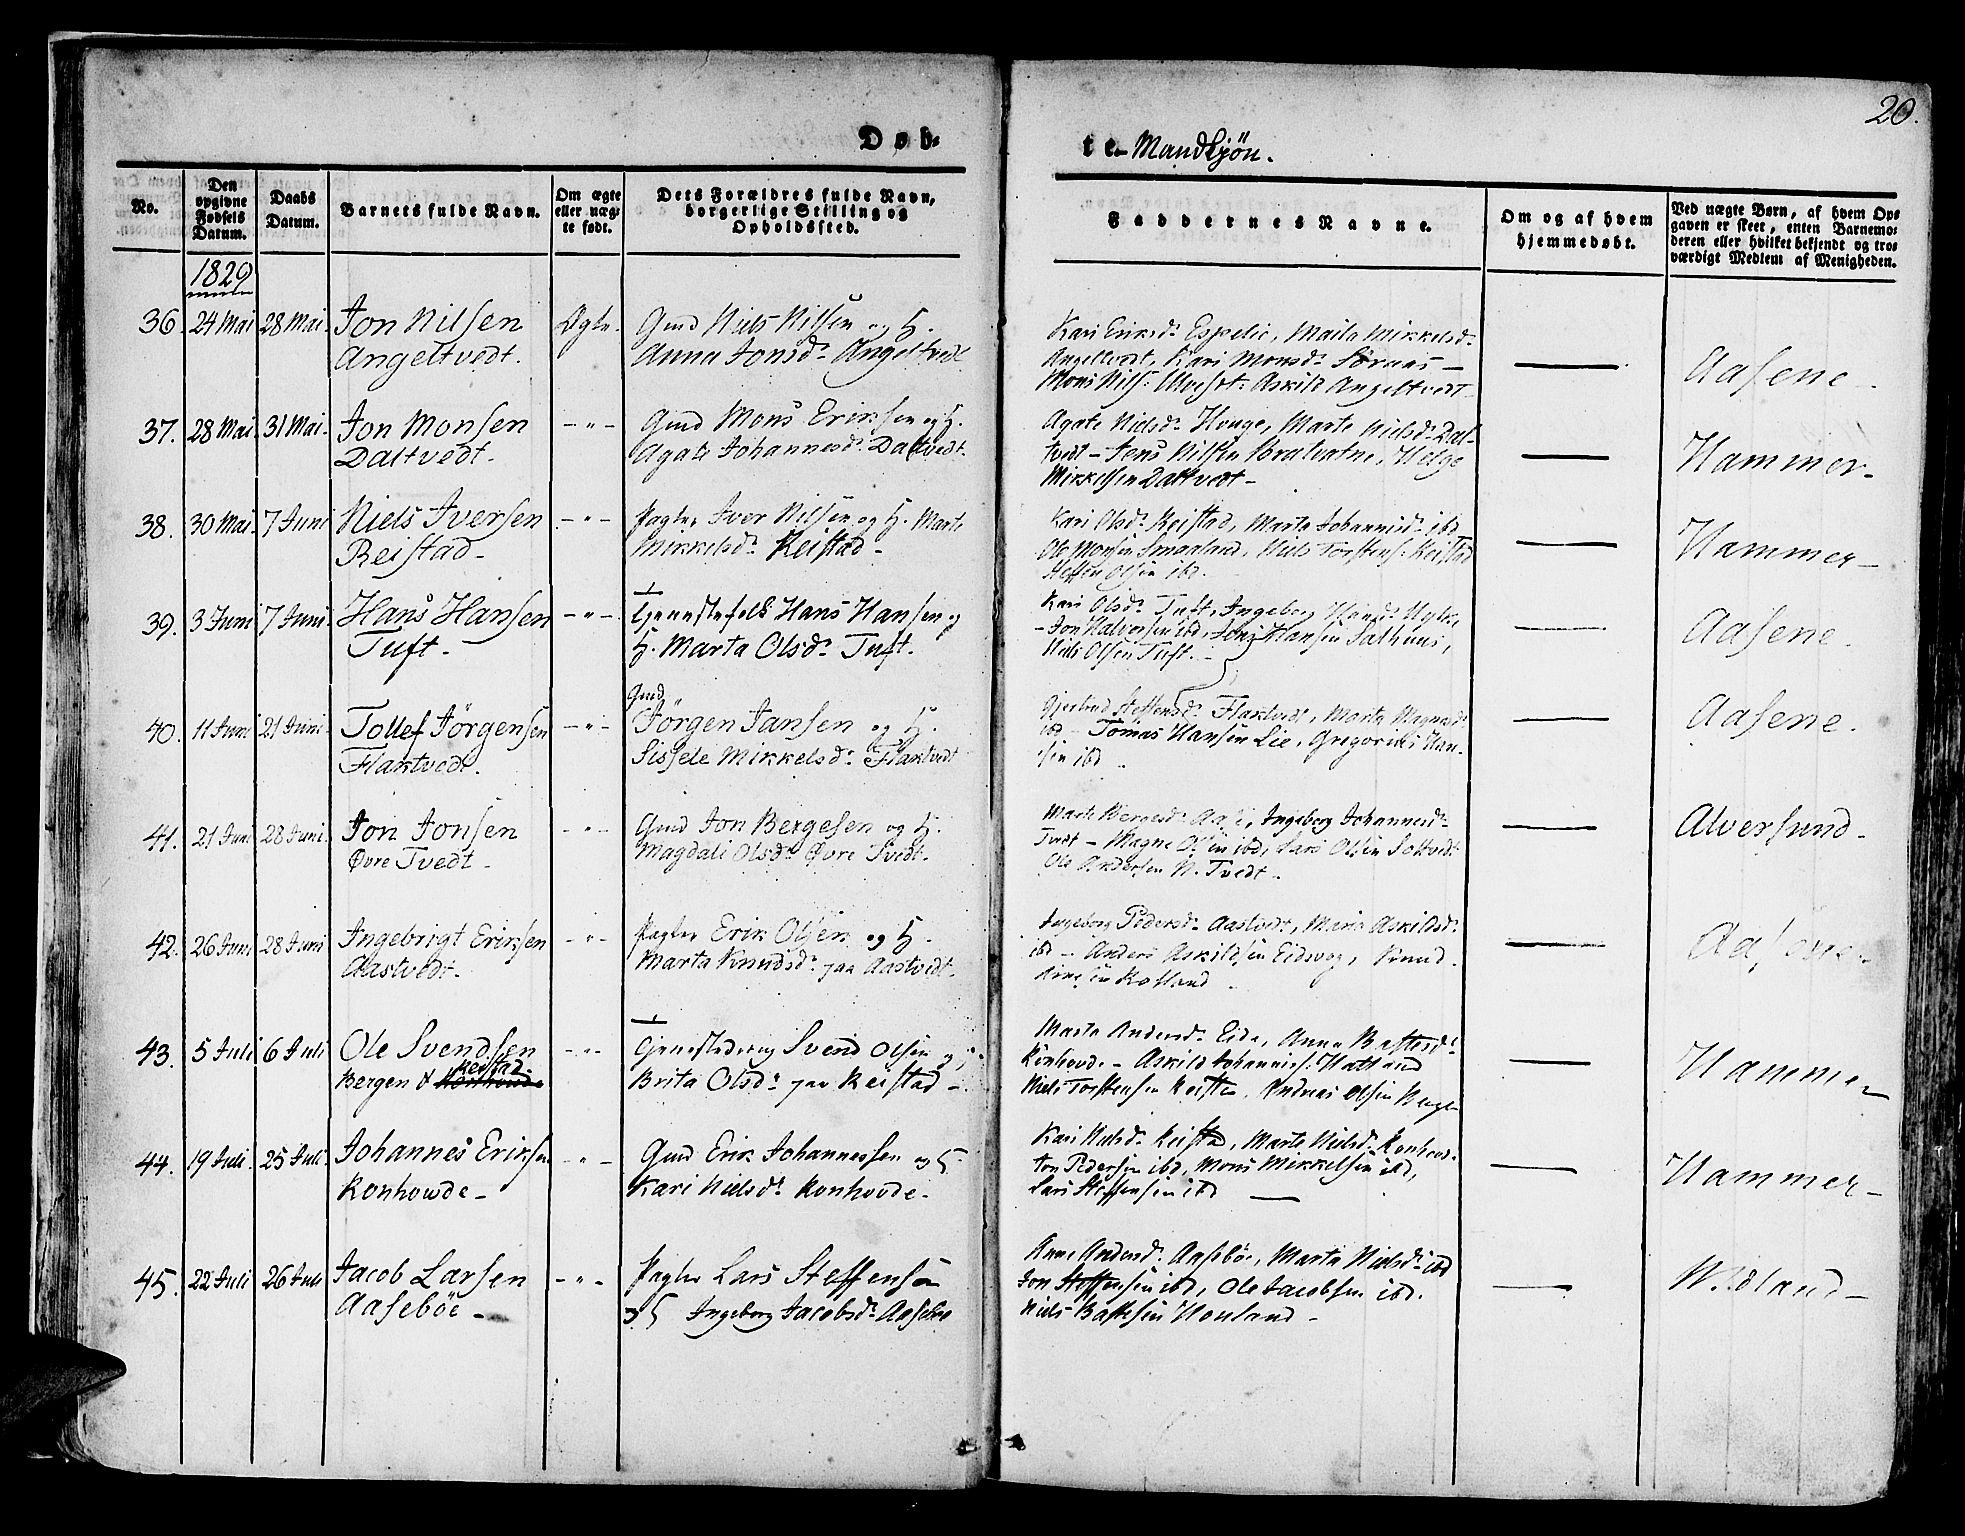 20.
Døb-
te Mandkjøn.
No.
Den opgivne Fødsels Datum.
Daabs Datum.
Barnets fulde Navn.
Om ægte eller uægte født.
Dets Forældres fulde Navn, borgerlige Stilling og Opholdssted.
Faddernes Navne.
Om og af hvem hjemmedøbt.
Ved uægte Børn, af hvem Opgaven er skeet, enten Barnemoderen eller hvilket bekjendt og troværdigt Medlem af Menigheden.
1829
36. 24 Mai 28 Mai. Jon Nilsen Ægte. Gmd Niels Nilsen og H.
Angeltvedt. Anna Jonsd. Angeltvedt
Kari Eriksd. Espelie, Maila Mikkelsd.
Angeltvedt, Kari Monsd. Förnæs —
Mons Nils. Askild Angeltvedt
Aasene
37. 28 Mai. 31 Mai. Jon Monsen -"- Gmd Mons Eriksen og H.
Daltvedt. Agate Johannesd. Daltvedt.
Agate Nielsd. Houge, Marte Nielsd. Dal-
tvedt — Jens Nilsen, Helge
Mikkelsen Daltvedt —
Hammer-
38. 30 Mai. 7 Juni Niels Iversen -"- Pagter Iver Nilsen og H. Marte
Reistad- Mikkelsd. Reistad -
Kari Olsd. Reistad, Marta Johannisd. ibd
Ole Monsen Smaaland, Niels Torstens. Reistad
Steffen Olsen ibd.
Hammer-
39. 3 Juni 7 Juni. Hans Hansen -"- Tjenestefolk Hans Hansen og
Tuft. - H. Marta Olsd. Tuft.
Kari Olsd. Tuft, Ingeborg Hansd.
- Jon Halversen ibd, Hansen
Niels Olsen Tuft. -
Aasene.
40. 11 Juni 21 Juni. Tollef Jörgensen -"- Gmd
Jörgen Jansen og H.
Flaktvedt. Sissele Mikkelsd. Flaktvedt
Gjertrud Steffensd. Flaktvedt, Marta Magnusd.
ibd - Tomas Hansen Lie, Gregorius Han-
sen ibd
Aasene.
41. 21 Juni 28 Juni. Jon Jonsen -"- Gmd Jon Bergesen og H.
Øvre Tvedt - Magdali Olsd. Øvre Tvedt.
Marte Bergesd., Ingeborg Johannesd.
Tvedt - Magne Olsen ibd, Lars Olsen
Ole Andersen N. Tvedt -
Alversund-
42. 26 Juni 28 Juni Ingebrigt Eriksen -"- Pagter Erik Olsen og H.
Aastvedt. Marta Knudsd. paa Aastvedt.
Ingeborg Pedersd. Aastvedt, Maria Askildsd.
ibd - Anders Askildsen Eidsvog, Knud
Aasene.
43. 5 Juli 6 Juli Ole Svendsen -"- Tjenestedreng Svend Olsen og
Reistad
Bergen & Brita Olsd. paa Reistad -
Marta Andersd. Eide, Anna Bastesd.
Konhovde - Askild Johannes. Hatland
Niels Torstensen, Andreas Olsen
Hammer
44. 19 Juli. 25 Juli. Johannes Eriksen -"- Gmd Erik Johannessen og H.
Konhowde - Kari Nielsd. Konhovde -
Kari Nielsd. Reistad, Marte Nielsd. Konhovde
Jon Pedersen ibd, Mons Mikkelsen ibd,
Lars Steffensen ibd
Hammer-
45. 22 Juli 26 Juli Jacob Larsen -"- Pagter Lars Steffensen
Aaseböe - og H Ingeborg Jacobsd. Aaseböe
Anne Andersd. Aaseböe, Marta Nielsd. ibd
Jon Steffensen ibd, Ole Jacobsen ibd.
Niels Bastesen Houland -